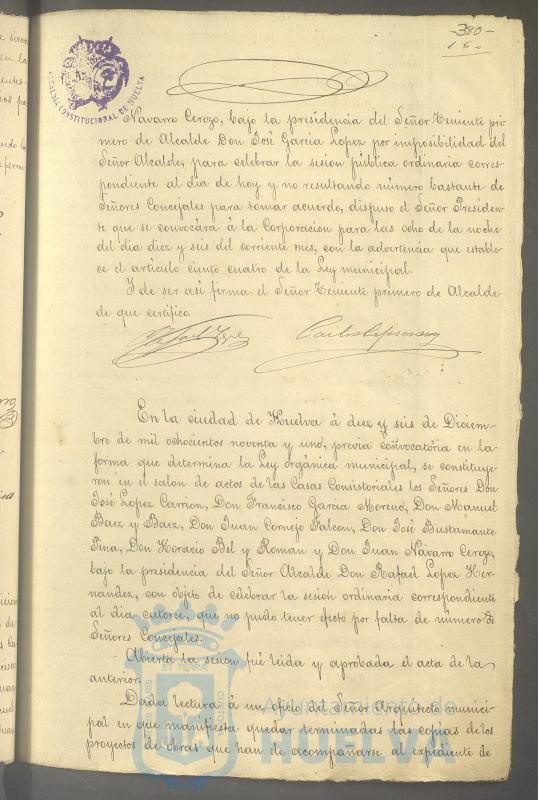 -380-
16-
ALCALDIA CONSTITUCIONAL DE HUELVA
Navarro Cerezo, bajo la presidencia del Señor Teniente pri
mero de Alcalde Don José Garcia Lopez por imposibilidad del
Señor Alcalde, para celebrar la sesion pública ordinaria corres-
pondiente al dia de hoy y no resultando número bastante de
Señores Concejales para tomar acuerdo, dispuso el Señor Presiden-
te que se convocára á la Corporacion para las ocho de la noche
del dia diez y seis del corriente mes, con la advertencia que estable-
ce el artículo ciento cuatro de la Ley municipal.
Y de ser asi firma el Señor Teniente primero de Alcalde
de que certifico.
En la ciudad de Huelva á diez y seis de Diciem-
bre de mil ochocientos noventa y uno, previa convocatoria en la
forma que determina la Ley orgánica municipal, se constituye-
ron en el salon de actos de las Casas Consistoriales los Señores Don
José Lopez Carrion, Don Francisco Garcia Moreno, Don Manuel
Baez y Baez, Don Juan Cornejo Falcon, Don José Bustamante
Pina, Don Horacio Bel y Roman y Don Juan Navarro Cerezo,
bajo la presidencia del Señor Alcalde Don Rafael Lopez Her-
nandez, con objeto de celebrar la sesion ordinaria correspondiente
al dia catorce, que no pudo tener efecto por falta de número de
Señores Concejales.
Abierta la sesion fué leida y aprobada el acta de la
anterior.
Dada lectura á un oficio del Señor Arquitecto munici-
pal en que manifiesta quedar terminadas las copias de los
proyectos de obras que han de acompañarse al expediente de
Ayuntamiento de
HUELVA